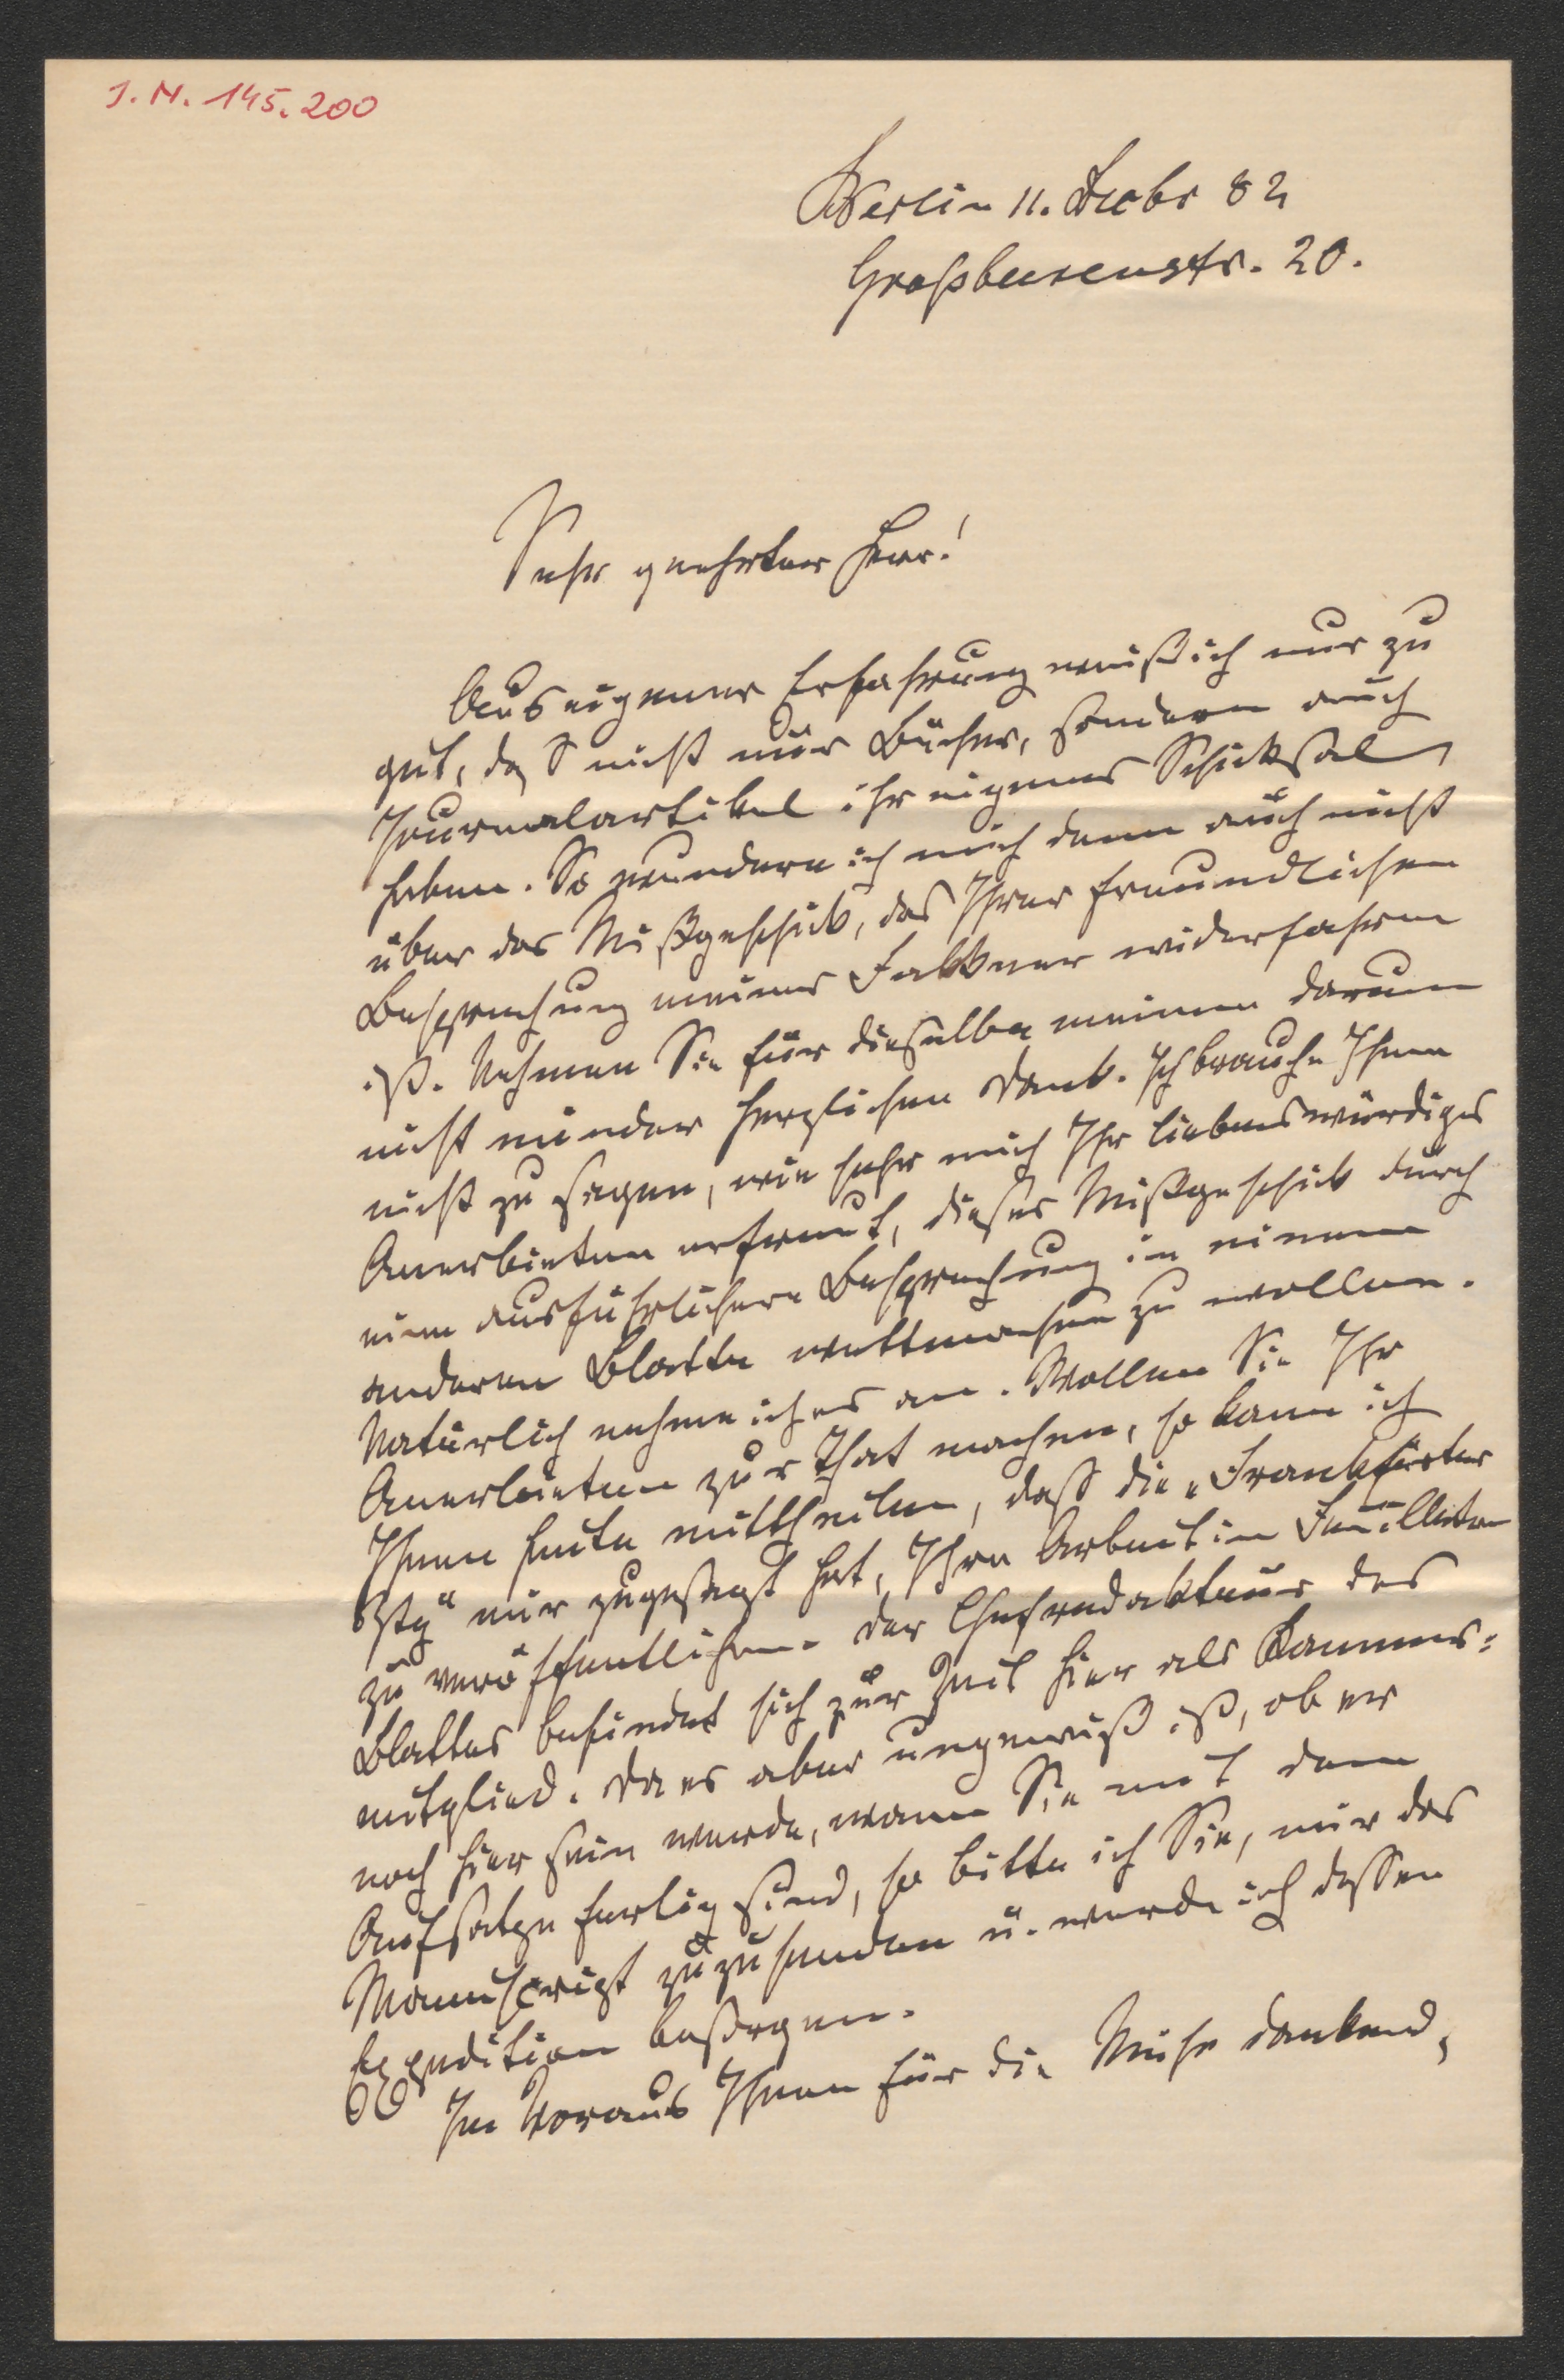 I. N. 145.200
Berlin 11. Decbr 82
Großbeerenstr. 20.
Sehr geehrter Herr!
Aus eigener Erfahrung weiß ich nur zu
gut, daß nicht nur Bücher, sondern auch
Journalartikel ihr eigenes Schicksal
haben. So wundere ich mich denn auch nicht
über das Mißgeschick, das Ihrer freundlichen
Besprechung meines Falkner widerfahren
ist. Nehmen Sie für dieselbe meinen darum
nicht minder herzlichen Dank. Ich brauche Ihnen
nicht zu sagen, wie sehr mich Ihr liebenswürdiges
Anerbieten erfreut, dieses Mißgeschick durch
eine ausführlichere Besprechung in einem
anderen Blatte wettmachen zu wollen.
Natürlich nehme ich es an. Wollen Sie Ihr
Anerbieten zur That machen, so kann ich
Ihnen heute mittheilen, daß die „Frankfurter
Ztg“ mir zugesagt hat, Ihre Arbeit im Feuilleton
zu veröffentlichen. Der Chefredakteur des
Blattes befindet sich zur Zeit hier als Kammer-
mitglied. Da es aber ungewiß ist, ob er
noch hier sein werde, wann Sie mit dem
Aufsatze fertig sind, so bitte ich Sie, mir das
Manuscript zuzusenden u. werde ich dessen
Expedition besorgen.
Im Voraus Ihnen für die Mühe dankend,